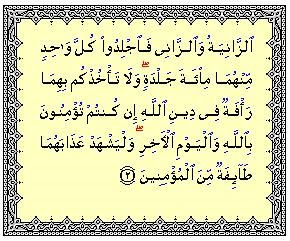 ٱلزَّانِيَةُ وَٱلزَّانِى فَٱجْلِدُوا۟ كُلَّ وَٰحِدٍ
مِّنْهُمَا مِا۟ئَةَ جَلْدَةٍ ۖ وَلَا تَأْخُذْكُم بِهِمَا
رَأْفَةٌ فِى دِينِ ٱللَّهِ إِن كُنتُمْ تُؤْمِنُونَ
بِٱللَّهِ وَٱلْيَوْمِ ٱلْءَاخِرِ ۖ وَلْيَشْهَدْ عَذَابَهُمَا
طَآئِفَةٌ مِّنَ ٱلْمُؤْمِنِينَ ﴿٢﴾